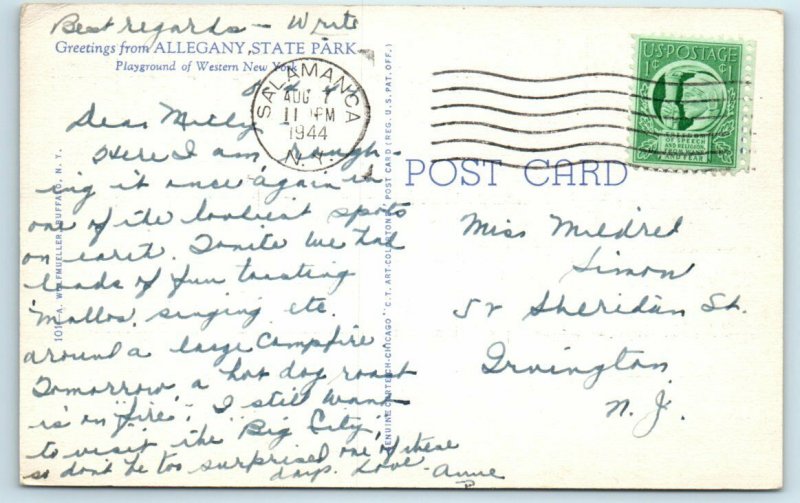 Best regards - Write
Greetings from ALLEGANY STATE PARK
Playground of Western New York
SALAMANCA
AUG 7
11 PM
1944
N.Y.
Dear Milly
Here I am rough-
ing it once again in
one of the loveliest spots
on earth. Tonite we had
loads of fun toasting
Mallos, singing etc.
around a large Campfire
Tomorrow, a hot dog roast
is "on fire". I still want
to visit the Big City,
so don't be too surprised one of these
days. Love - Anne
BUFFALO, N. Y.
GENUINE CURTEICH-CHICAGO "C. T. ART-COLORTONE" POST CARD (REG. U. S. PAT. OFF.)
POST CARD
U.S. POSTAGE
1¢ ¢1
FREEDOM
OF SPEECH
AND RELIGION,
FROM WANT
AND FEAR
Miss Mildred
Simon
52 Sheridan St.
Irvington
N. J.